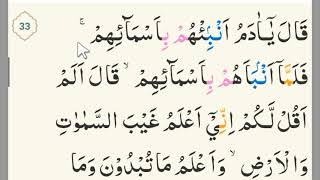 33
قَالَ يٰٓاٰدَمُ اَنْۢبِئْهُمْ بِاَسْمَآئِهِمْ ۚ
فَلَمَّآ اَنْۢبَاَهُمْ بِاَسْمَآئِهِمْ ۙ قَالَ اَلَمْ
اَقُلْ لَّكُمْ اِنِّيْٓ اَعْلَمُ غَيْبَ السَّمٰوٰتِ
وَالْاَرْضِ ۙ وَاَعْلَمُ مَا تُبْدُوْنَ وَمَا